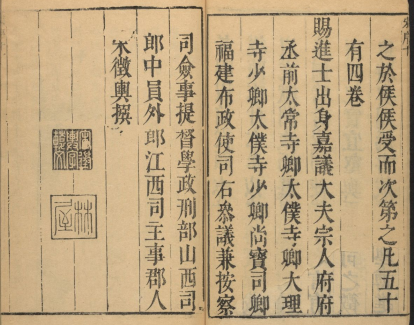 之於侯侯受而次第之凡五十
有四卷
賜進士出身嘉議大夫宗人府府
丞前太常寺卿太僕寺卿大理
寺少卿太僕寺少卿尚寶司卿
福建布政使司右叅議兼按察
司僉事提督學政刑部山西司
郎中員外郎江西司主事郡人
宋徵輿撰